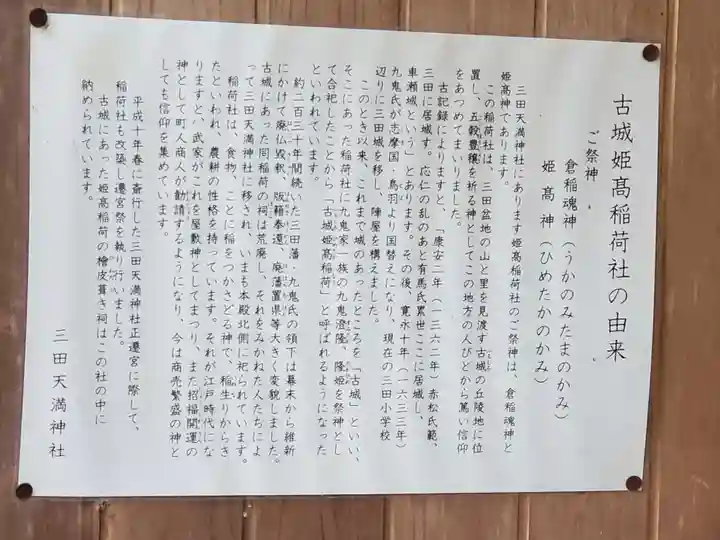 古城姫髙稲荷社の由来
ご祭神
倉稲魂神(うかのみたまのかみ)
姫髙神(ひめたかのかみ)
三田天満神社にあります姫髙稲荷社のご祭神は、倉稲魂神と
姫髙神であります。
この稲荷社は、三田盆地の山と里を見渡す古城の丘陵地に位
置し、五穀豊穣を祈る神としてこの地方の人びとから篤い信仰
をあつめてまいりました。
古記録によりますと、「康安二年(一三六二年)赤松氏範、
三田に居城す。応仁の乱のあと有馬氏累世ここに居城し、
車瀬城という」とあります。その後、寛永十年(一六三三年)
九鬼氏が志摩国・鳥羽より国替えになり、現在の三田小学校
辺りに三田城を移し、陣屋を構えました。
このとき以来、これまで城のあったところを「古城」といい、
そこにあった稲荷社に九鬼家一族の九鬼澄隆、隆姫を祭神とし
て合祀したことから「古城姫髙稲荷」と呼ばれるようになった
といわれています。
約二百三十年間続いた三田藩・九鬼氏の領下は幕末から維新
にかけて廃仏毀釈、版籍奉還、廃藩置県等大きく変貌しました。
古城にあった同稲荷の祠は荒廃し、それをみかねた人たちによ
って三田天満神社に移され、いまも本殿北側に祀られています。
稲荷社は、食物、ことに稲をつかさどる神で、稲生りからき
たといわれ、農耕の性格を持っています。それが江戸時代にな
りますと、武家がこれを屋敷神としてまつり、また招福開運の
神として町人商人が勧請するようになり、今は商売繁盛の神と
しても信仰を集めています。
平成十年春に斎行した三田天満神社正遷宮に際して、
稲荷社も改築し遷宮祭を執り行いました。
古城にあった姫髙稲荷の檜皮葺き祠はこの社の中に
納められています。
三田天満神社